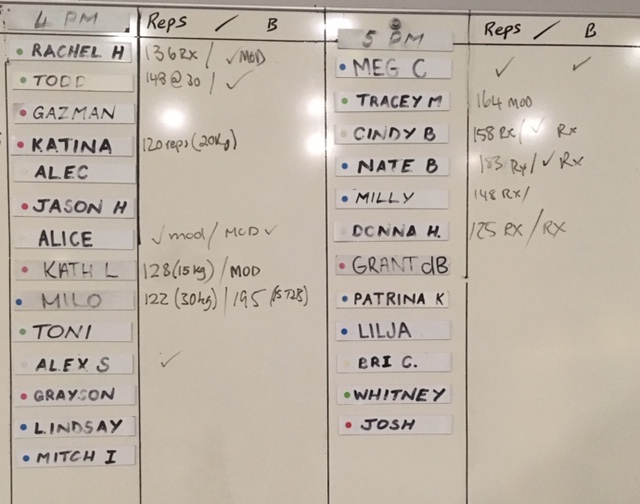 4 PM Reps / B
RACHEL H 136 RX / ✓ MOD
TODD 148 @ 30 / ✓
GAZMAN
KATINA 120 reps (20kg)
ALEC
JASON H
ALICE ✓ mod / MOD ✓
KATH L 128 (15kg) / MOD
MILO 122 (30kg) / 195
TONI
ALEX S ✓
GRAYSON
LINDSAY
MITCH I
5 PM Reps / B
MEG C ✓ ✓
TRACEY M 164 MOD
CINDY B 158 RX / ✓ RX
NATE B 183 RX / ✓ RX
MILLY 148 RX /
DONNA H. 125 RX / RX
GRANT dB
PATRINA K
LILJA
BRI C.
WHITNEY
JOSH